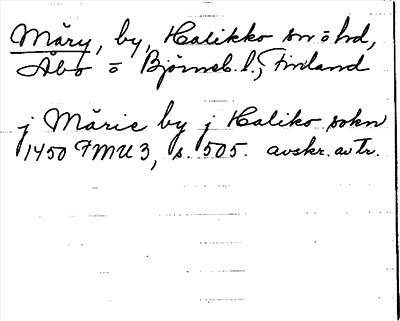 Märy, by, Halikko sn o hd,
Åbo o Björneb. l., Finland
j Märie by j Haliko sokn
1450 FMU 3, s. 505. avskr. av Tr.